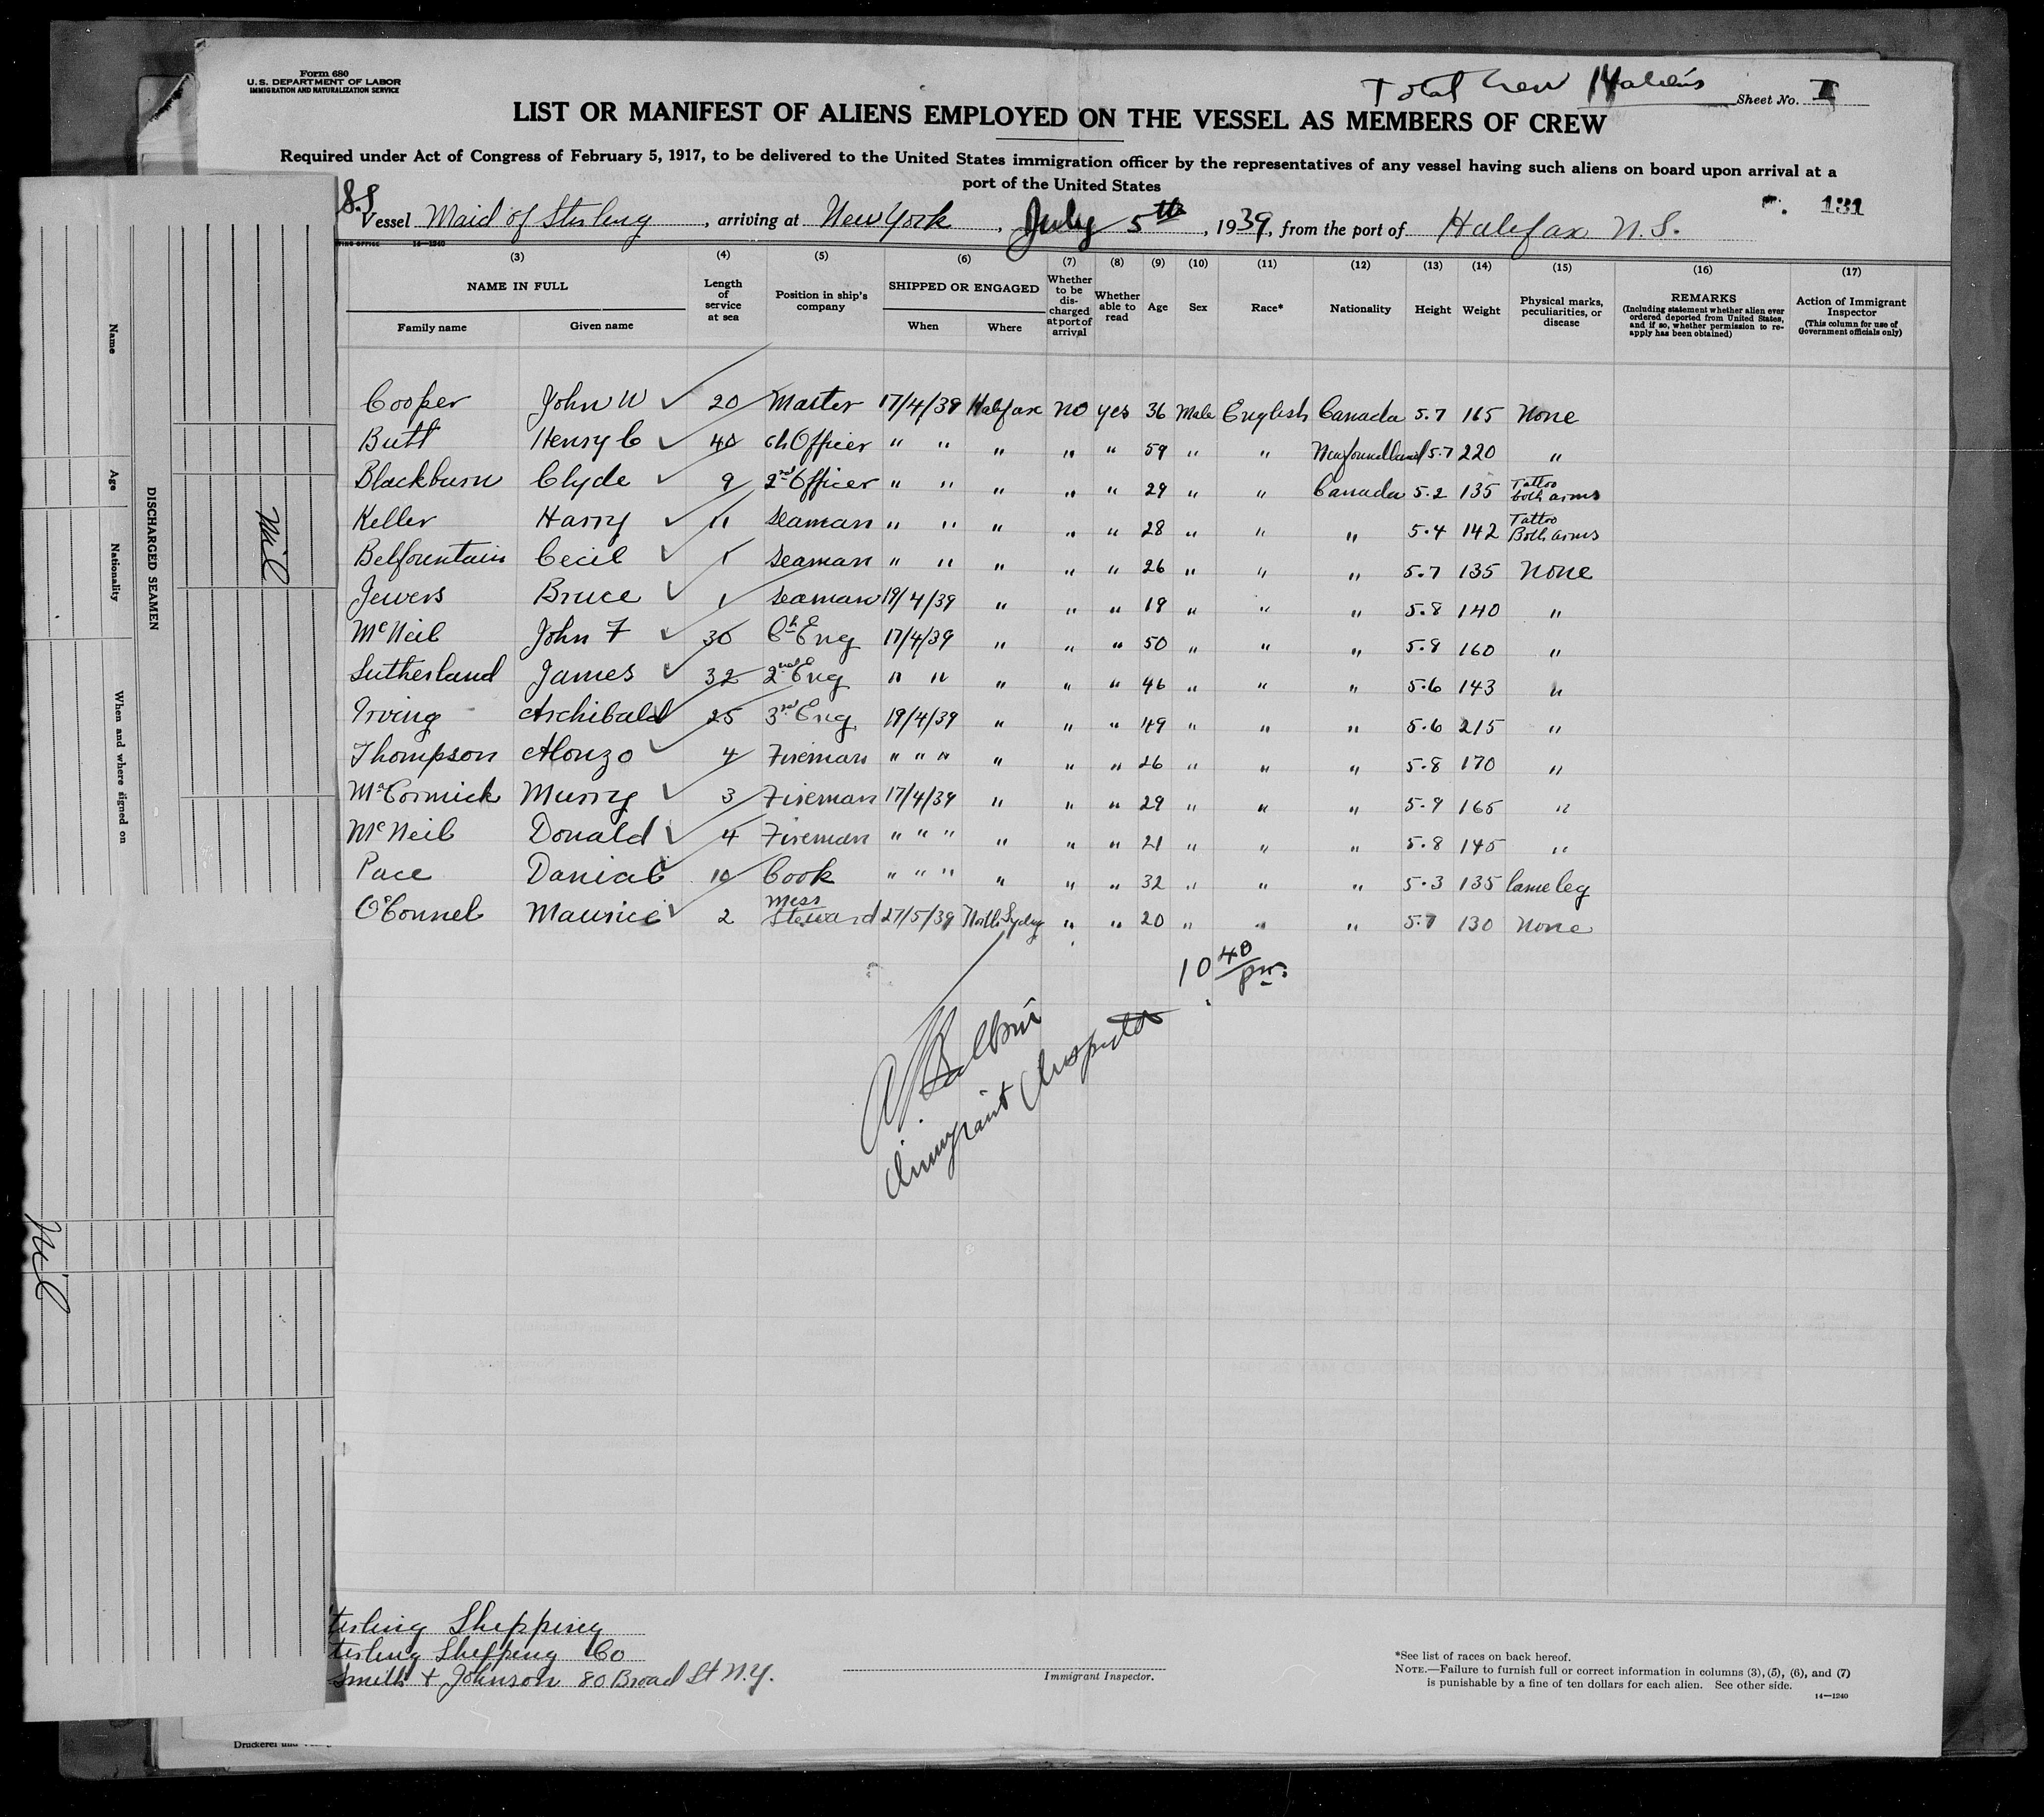 Form 680
U.S. DEPARTMENT OF LABOR
IMMIGRATION AND NATURALIZATION SERVICE
Total Crew 14 aliens
Sheet No. I
LIST OR MANIFEST OF ALIENS EMPLOYED ON THE VESSEL AS MEMBERS OF CREW
Required under Act of Congress of February 5, 1917, to be delivered to the United States immigration officer by the representatives of any vessel having such aliens on board upon arrival at a
port of the United States
131
S.S
Vessel Maid of Stirling, arriving at New York, July 5th, 1939, from the port of Halifax N.S.
14—1240
(3) (4) (5) (6) (7) (8) (9) (10) (11) (12) (13) (14) (15) (16) (17)
NAME IN FULL
Family name
Given name
Length of service at sea
Position in ship's company
SHIPPED OR ENGAGED
When
Where
Whether to be discharged at port of arrival
Whether able to read
Age
Sex
Race*
Nationality
Height
Weight
Physical marks, peculiarities, or disease
REMARKS
(Including statement whether alien ever ordered deported from United States, and if so, whether permission to reapply has been obtained)
Action of Immigrant Inspector
(This column for use of Government officials only)
Cooper John W 20 Master 17/4/39 Halifax no yes 36 Male English Canada 5.7 165 None
Butt Henry C 40 Ch Officer " " " " " 59 " " Newfoundland 5.7 220 "
Blackburn Clyde 9 2nd Officer " " " " " 29 " " Canada 5.2 135 Tattoo both arms
Keller Harry 11 Seaman " " " " " 28 " " " 5.4 142 Tattoo Both arms
Belfountain Cecil 1 Seaman " " " " " 26 " " " 5.7 135 None
Jewers Bruce 1 Seaman 19/4/39 " " " 19 " " " 5.8 140 "
McNeil John F 30 Ch Eng 17/4/39 " " " 50 " " " 5.8 160 "
Sutherland James 32 2nd Eng " " " " " 46 " " " 5.6 143 "
Irving Archibald 25 3rd Eng 19/4/39 " " " 49 " " " 5.6 215 "
Thompson Alonzo 4 Fireman " " " " " " 26 " " " 5.8 170 "
McCormick Murry 3 Fireman 17/4/39 " " " 29 " " " 5.9 165 "
McNeil Donald 4 Fireman " " " " " " 21 " " " 5.8 145 "
Pace Danial 10 Cook " " " " " " 32 " " " 5.3 135 lame leg
O'Connel Maurice 2 Mess Steward 27/5/39 North Sydney " " 20 " " " 5.7 130 None
10 40 pm.
Immigrant Inspector
Name
Age
Nationality
When and where signed on
DISCHARGED SEAMEN
Nil
Nil
terling Shipping
terling Shipping Co
Smith & Johnson 80 Broad St N.Y.
Immigrant Inspector.
*See list of races on back hereof.
NOTE.—Failure to furnish full or correct information in columns (3), (5), (6), and (7)
is punishable by a fine of ten dollars for each alien. See other side.
14—1240